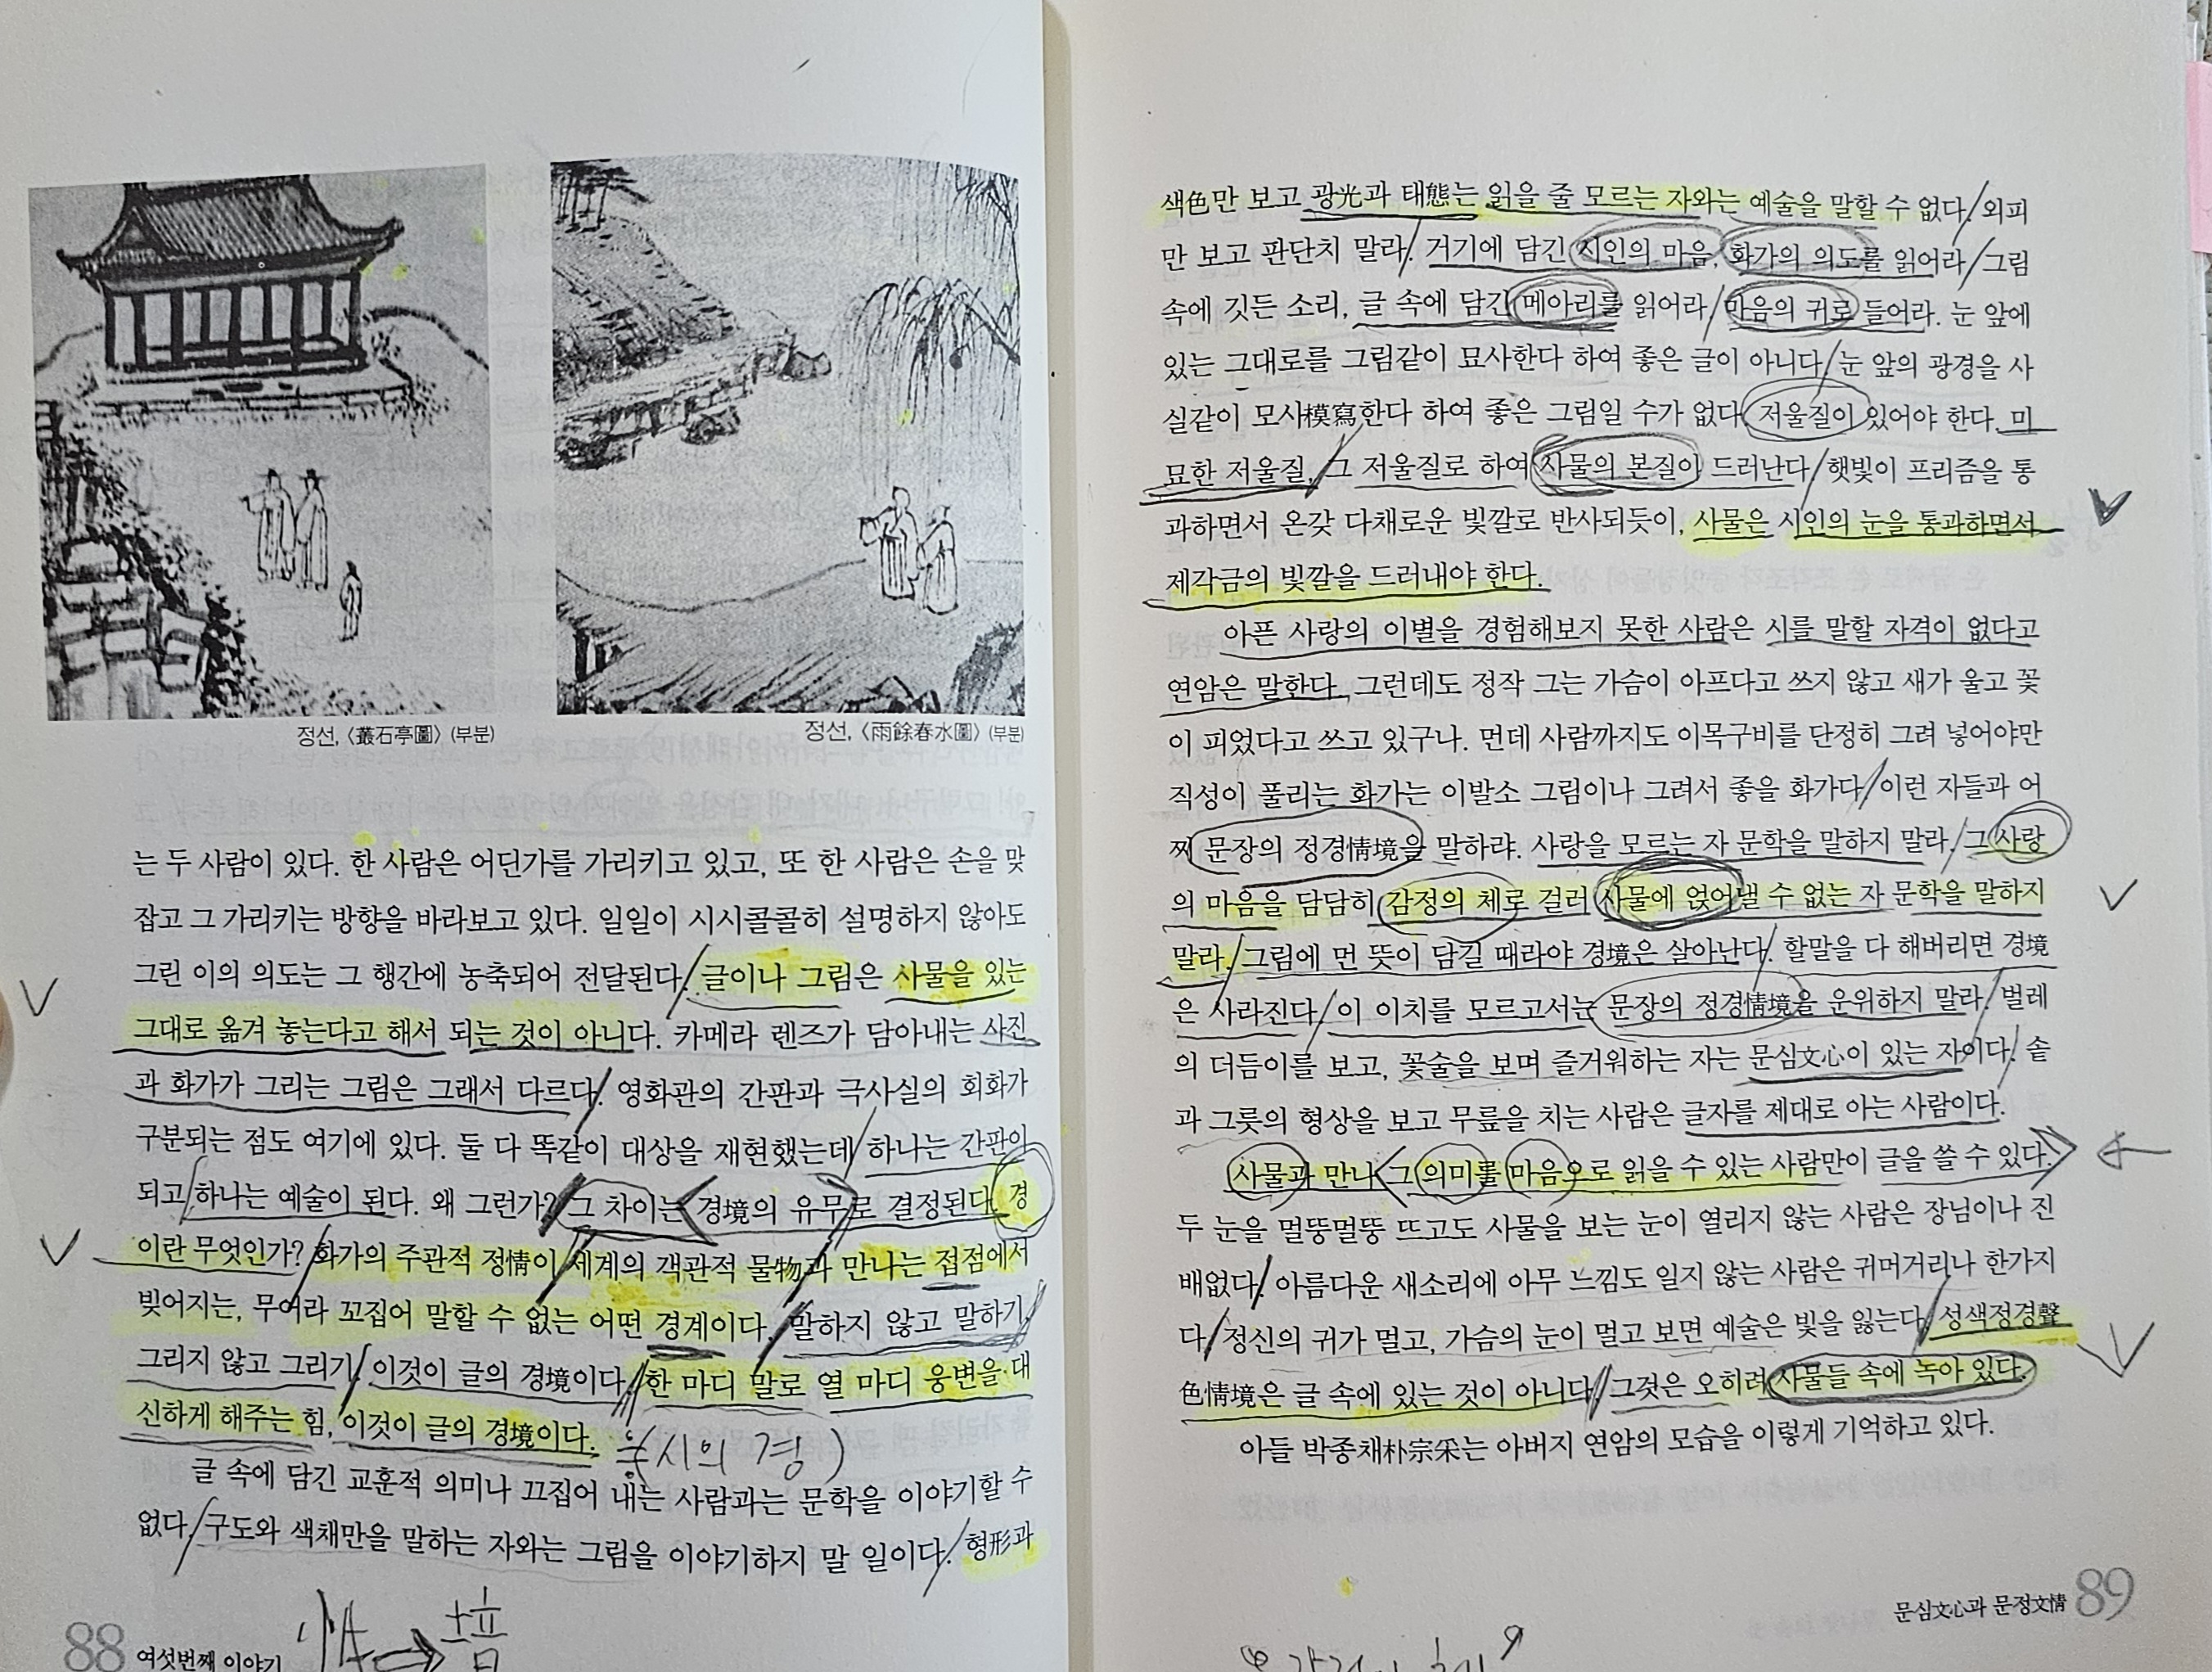 정선, 〈叢石亭圖〉 (부분)
정선, 〈雨餘春水圖〉 (부분)
는 두 사람이 있다. 한 사람은 어딘가를 가리키고 있고, 또 한 사람은 손을 맞
잡고 그 가리키는 방향을 바라보고 있다. 일일이 시시콜콜히 설명하지 않아도
그린 이의 의도는 그 행간에 농축되어 전달된다. 글이나 그림은 사물을 있는
그대로 옮겨 놓는다고 해서 되는 것이 아니다. 카메라 렌즈가 담아내는 사진
과 화가가 그리는 그림은 그래서 다르다. 영화관의 간판과 극사실의 회화가
구분되는 점도 여기에 있다. 둘 다 똑같이 대상을 재현했는데 하나는 간판이
되고 하나는 예술이 된다. 왜 그런가? 그 차이는 경境의 유무로 결정된다. 경
이란 무엇인가? 화가의 주관적 정情이 세계의 객관적 물物과 만나는 접점에서
빚어지는, 무어라 꼬집어 말할 수 없는 어떤 경계이다. 말하지 않고 말하기,
그리지 않고 그리기. 이것이 글의 경境이다. 한 마디 말로 열 마디 웅변을 대
신하게 해주는 힘, 이것이 글의 경境이다. (시의 경)
글 속에 담긴 교훈적 의미나 끄집어 내는 사람과는 문학을 이야기할 수
없다. 구도와 색채만을 말하는 자와는 그림을 이야기하지 말 일이다. 형形과
88 여섯번째 이야기
색色만 보고 광光과 태態는 읽을 줄 모르는 자와는 예술을 말할 수 없다. 외피
만 보고 판단치 말라. 거기에 담긴 시인의 마음, 화가의 의도를 읽어라. 그림
속에 깃든 소리, 글 속에 담긴 메아리를 읽어라. 마음의 귀로 들어라. 눈 앞에
있는 그대로를 그림같이 묘사한다 하여 좋은 글이 아니다. 눈 앞의 광경을 사
실같이 모사模寫한다 하여 좋은 그림일 수가 없다. 저울질이 있어야 한다. 미
묘한 저울질, 그 저울질로 하여 사물의 본질이 드러난다. 햇빛이 프리즘을 통
과하면서 온갖 다채로운 빛깔로 반사되듯이, 사물은 시인의 눈을 통과하면서
제각금의 빛깔을 드러내야 한다.
아픈 사랑의 이별을 경험해보지 못한 사람은 시를 말할 자격이 없다고
연암은 말한다. 그런데도 정작 그는 가슴이 아프다고 쓰지 않고 새가 울고 꽃
이 피었다고 쓰고 있구나. 먼데 사람까지도 이목구비를 단정히 그려 넣어야만
직성이 풀리는 화가는 이발소 그림이나 그려서 좋을 화가다. 이런 자들과 어
찌 문장의 정경情境을 말하랴. 사랑을 모르는 자 문학을 말하지 말라. 그 사랑
의 마음을 담담히 감정의 체로 걸러 사물에 얹어낼 수 없는 자 문학을 말하지
말라. 그림에 먼 뜻이 담길 때라야 경境은 살아난다. 할말을 다 해버리면 경境
은 사라진다. 이 이치를 모르고서는 문장의 정경情境을 운위하지 말라. 벌레
의 더듬이를 보고, 꽃술을 보며 즐거워하는 자는 문심文心이 있는 자이다. 솥
과 그릇의 형상을 보고 무릎을 치는 사람은 글자를 제대로 아는 사람이다.
사물과 만나 그 의미를 마음으로 읽을 수 있는 사람만이 글을 쓸 수 있다.
두 눈을 멀뚱멀뚱 뜨고도 사물을 보는 눈이 열리지 않는 사람은 장님이나 진
배없다. 아름다운 새소리에 아무 느낌도 일지 않는 사람은 귀머거리나 한가지
다. 정신의 귀가 멀고, 가슴의 눈이 멀고 보면 예술은 빛을 잃는다. 성색정경聲
色情境은 글 속에 있는 것이 아니다. 그것은 오히려 사물들 속에 녹아 있다.
아들 박종채朴宗采는 아버지 연암의 모습을 이렇게 기억하고 있다.
문심文心과 문정文情 89